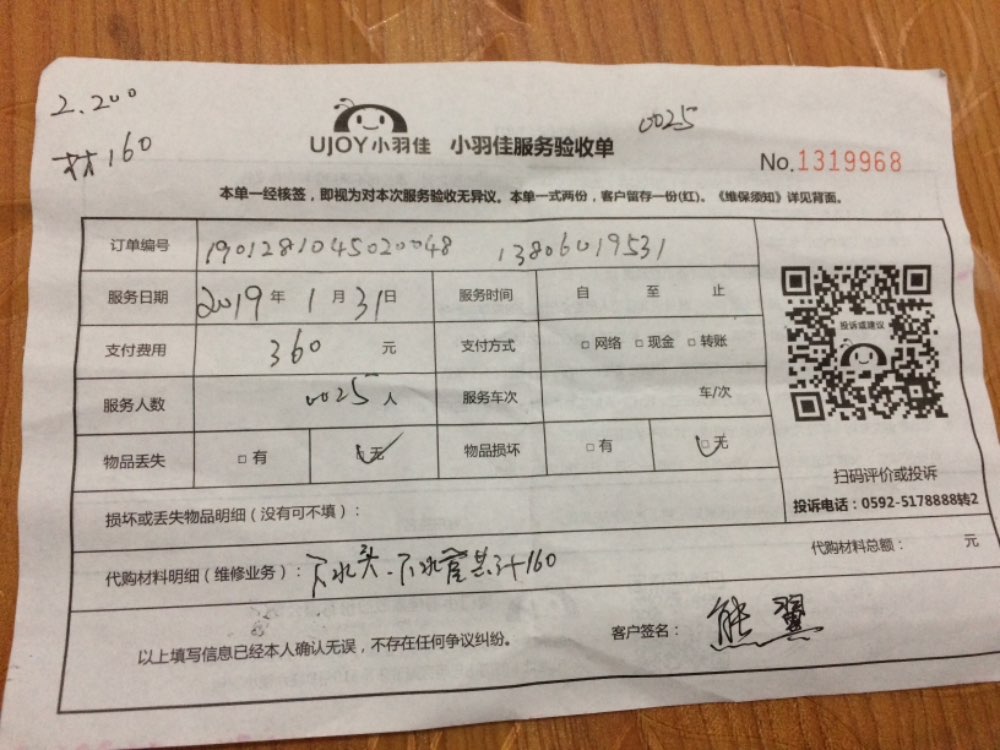 2.200
材160
UJOY小羽佳 小羽佳服务验收单
0025
No.1319968
本单一经核签，即视为对本次服务验收无异议。本单一式两份，客户留存一份(红)。《维保须知》详见背面。
订单编号 1901281045020048 13806019531
服务日期 2019年1月31日 服务时间 自 至 止
支付费用 360 元 支付方式 □网络 □现金 □转账
服务人数 0025人 服务车次 车/次
物品丢失 □有 □无 物品损坏 □有 □无
投诉或建议
扫码评价或投诉
投诉电话：0592-5178888转2
损坏或丢失物品明细（没有可不填）：
代购材料明细（维修业务）：下水头.下水管共计160
代购材料总额： 元
以上填写信息已经本人确认无误，不存在任何争议纠纷。
客户签名：熊翼